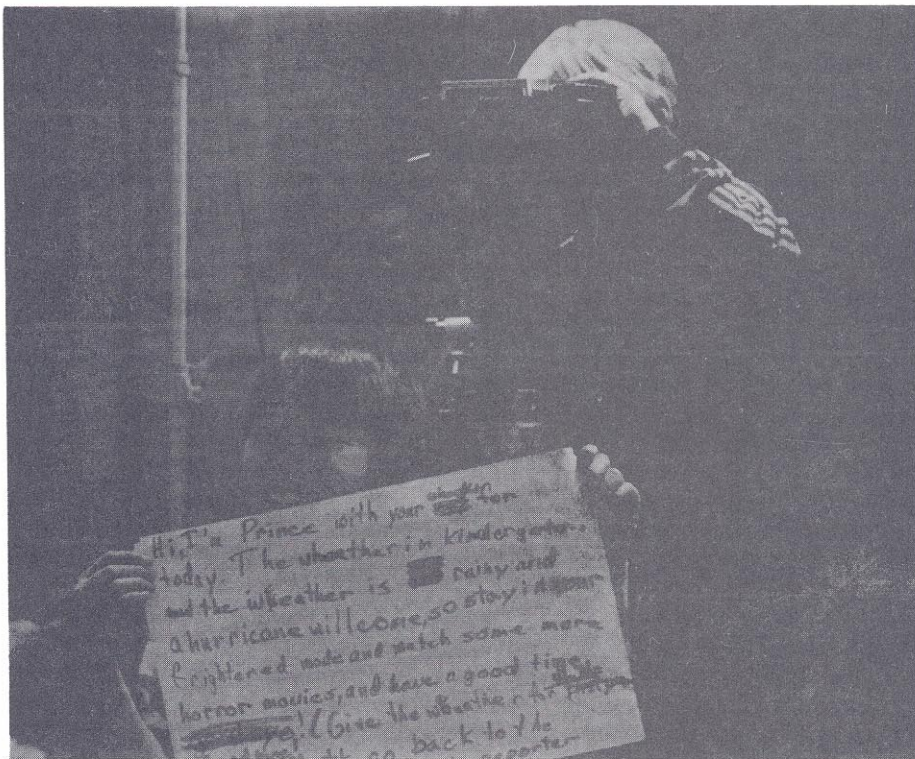 Hi, I'm Prince with your for
today. The wheather in kindergarten
and the wheather is rainy and
a hurricane will come, so stay in your
frightered mode and watch some more
horror movies, and have a good time
! (Give the wheather for
go back to the
reporter